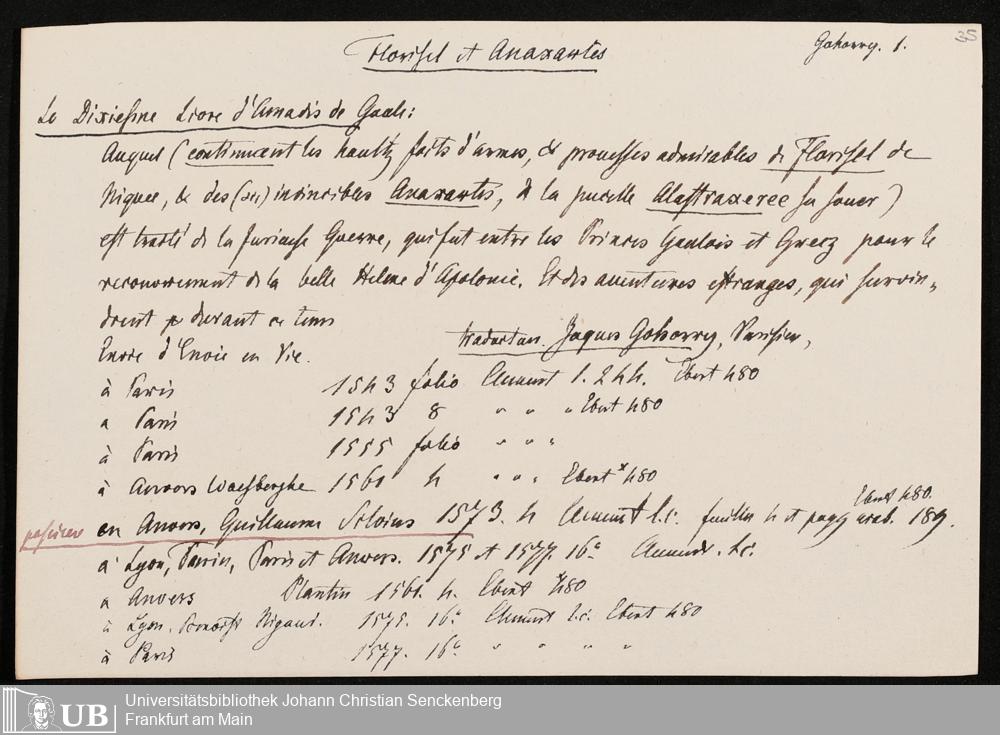 Florisel et Anaxartes
Gohorry. 1.
35
Le Dixiesme Livre d'Amadis de Gaule:
Auquel (continuant les haultz faits d'armes, & prouesses admirables de Florisel de
Niquee, & des (sic) invincibles Anaxartes, & la pucelle Alastraxeree sa soeur)
est traité de la furieuse Guerre, qui fut entre les Princes Gaulois et Grecz pour le
recouvrement de la belle Helene d'Apolonie. Et des aventures estranges, qui survin-
drent durant ce tems
traducteur. Jaques Gohorry, Parisien,
Envie d'Envie en Vie.
à Paris 1543 folio 1. 244. Ebert 480
a Paris 1543 8 " " " Ebert 480
à Paris 1555 folio " " "
à Anvers Waesberghe 1561 4 " " " Ebert 480
possideo en Anvers, Guillaume Silvius 1573. 4 l.c. feuilles 4 et pagg arab. 189. Ebert 480.
à Lyon, Paris, Paris et Anvers. 1575 et 1577. 16° l.c.
a Anvers Plantin 1561. 4. Ebert 480
à Lyon. Benoist Rigaud. 1575. 16° l.c. Ebert 480
à Paris 1577. 16° " " " "
UB
Universitätsbibliothek Johann Christian Senckenberg
Frankfurt am Main